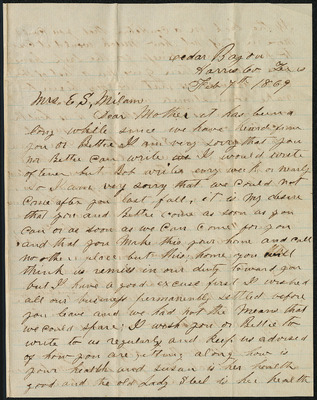 Cedar Bayou
Harris Co Texas
Feb 7th 1869
Mrs. E. S. Milam
Dear Mother it has been a
long while since we have heard from
you or Bettie I am very sorry that you
nor Bettie can write as I would write
oftener but Dot writes every week or nearly
so I am very sorry that we could not
come after you last fall, it is my desire
that you and Bettie come as soon as you
can or as soon as we can come for you
and that you make this your home and call
no other place but this home you will
think us remiss in our duty toward you
but I have a good excuse first I wished
all our business permanently settled before
you leave and we had not the means that
we could spare; I wish you or Bettie to
write to us regularly and keep us advised
of how you are getting along how is
your health and Susan is her health
good and the old Lady is her health